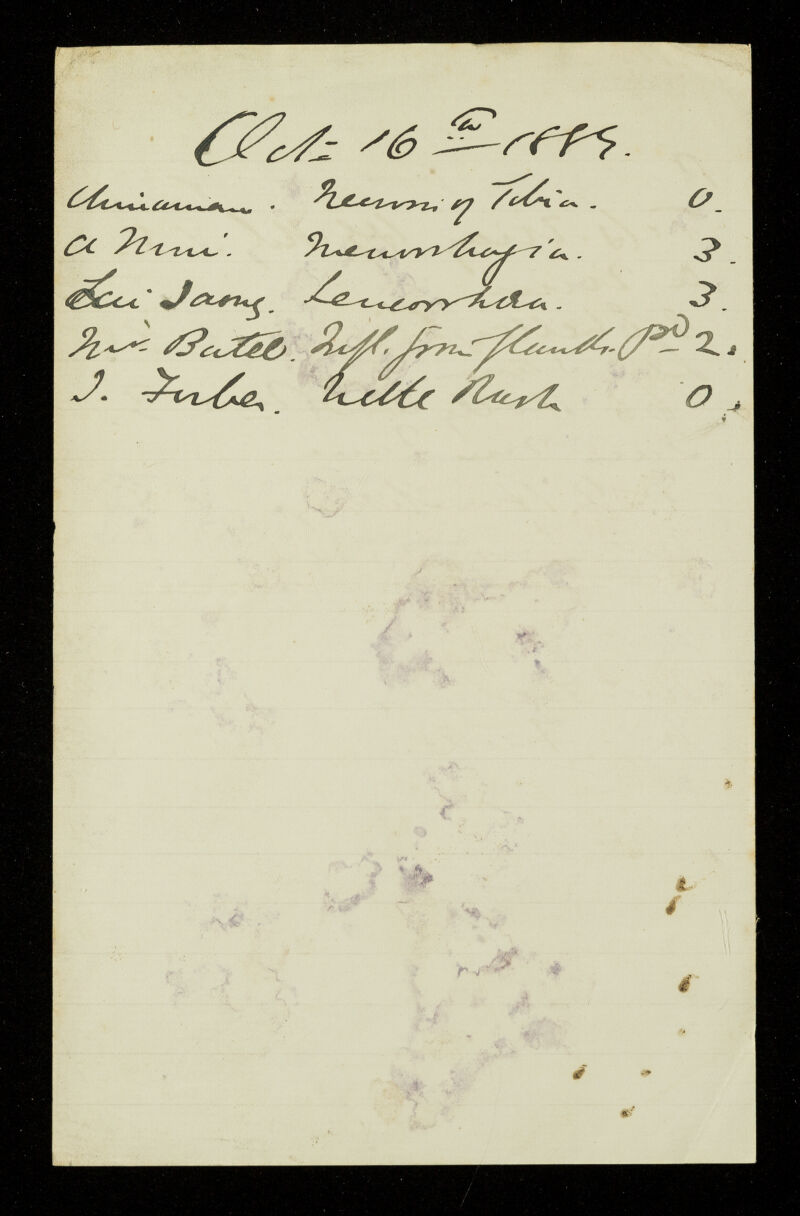 Oct: 16th 1889.
Chinaman. Necrosis of Tibia. 0.
A Nini. Menorrhagia. 3.
Lai Saong. Leucorrhœa. 3.
Mr Batel. Infl. from glands. pd 2.
J. Forbes. Nettle Rash 0.